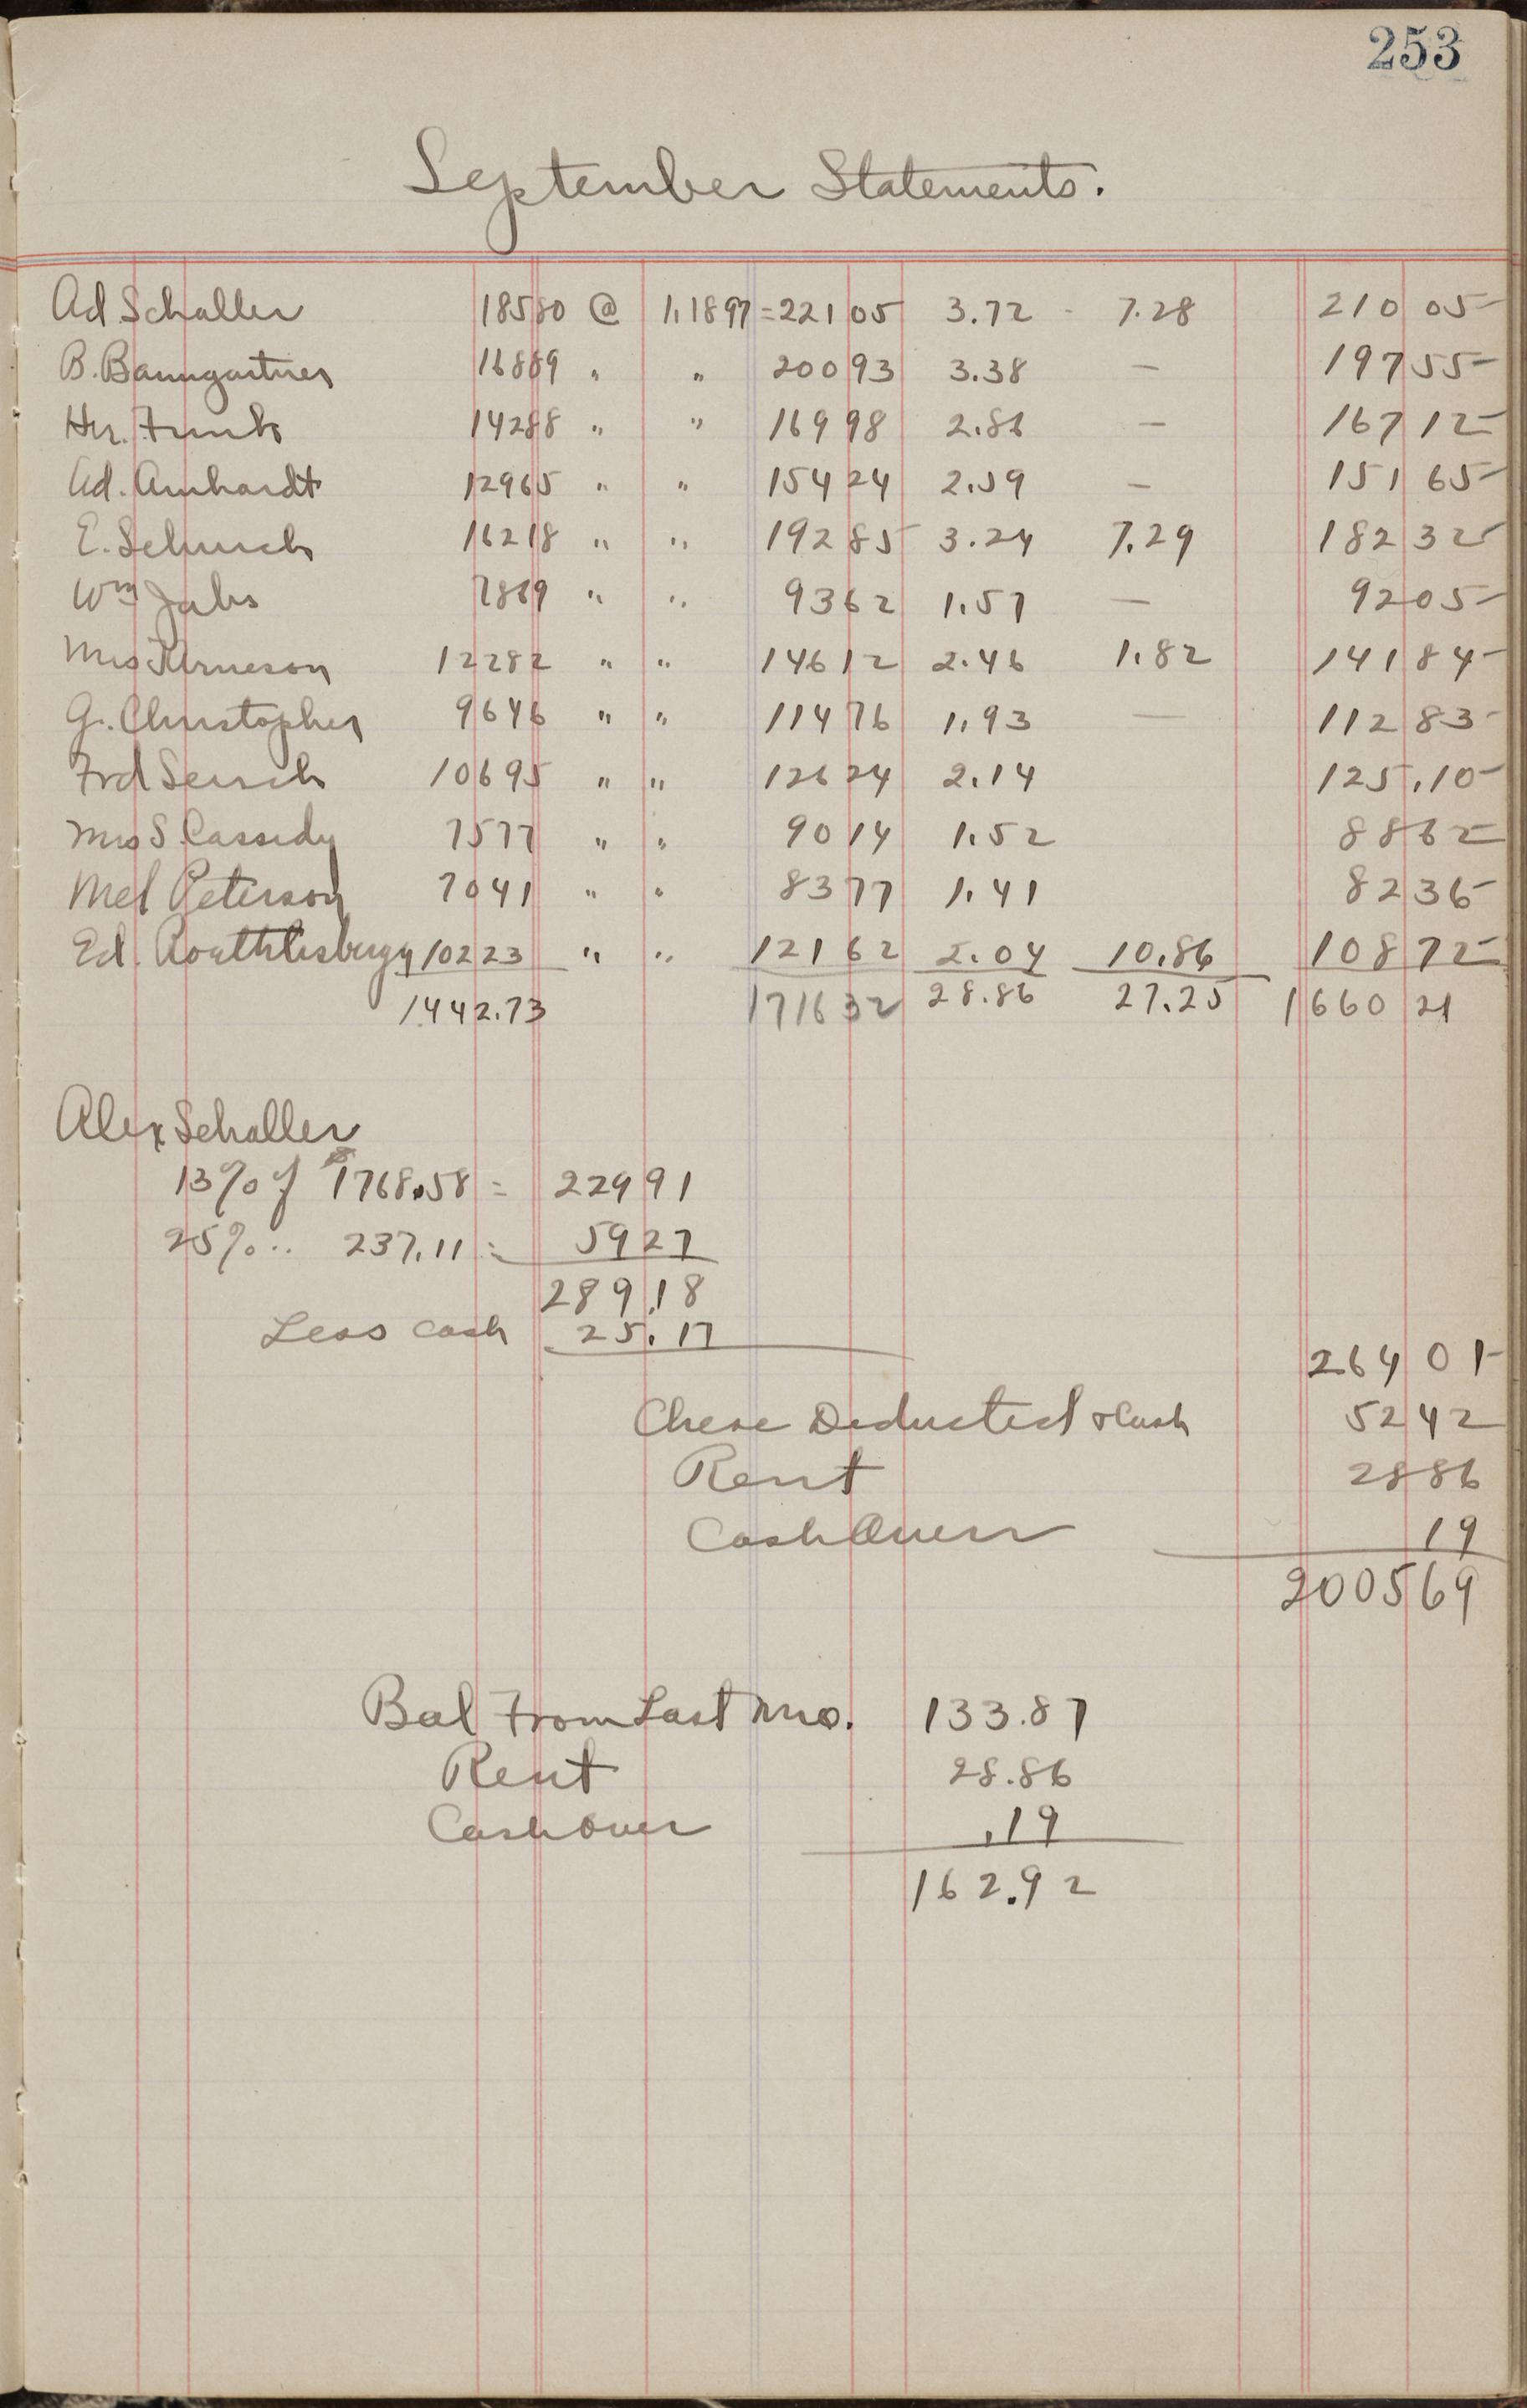 253
September Statements.
Ad. Schaller 18580 @ 1.1897 = 221 05 3.72 - 7.28 210 05
B. Baumgartner 16889 " " 200 93 3.38 — 197 55
Hr. Funk 14288 " " 169 98 2.86 — 167 12
Ad. Amhardt 12965 " " 154 24 2.59 — 151 65
E. Schurch 16218 " " 192 85 3.24 7.29 182 32
Wm Jabs 7869 " " 93 62 1.57 — 92 05
Mrs Arneson 12282 " " 146 12 2.46 1.82 141 84
G. Christopher 9646 " " 114 76 1.93 — 112 83
Frd Sersch 10695 " " 126 24 2.14 125.10
Mrs S. Cassidy 7577 " " 90 14 1.52 88 62
Mel Peterson 7041 " " 83 77 1.41 82 36
Ed. 10223 " " 121 62 2.04 10.86 108 72
1442.73 1716 32 28.86 27.25 1660 21
Alex Schaller
13% of 1768.58 = 229 91
25% .. 237.11 = 59 27
289.18
Less cash 25.17
264 01
Chese Deducted & Cash 52 42
Rent 28 86
Cash Over 19
2005 69
Bal From Last Mo. 133.87
Rent 28.86
Cash over .19
162.92